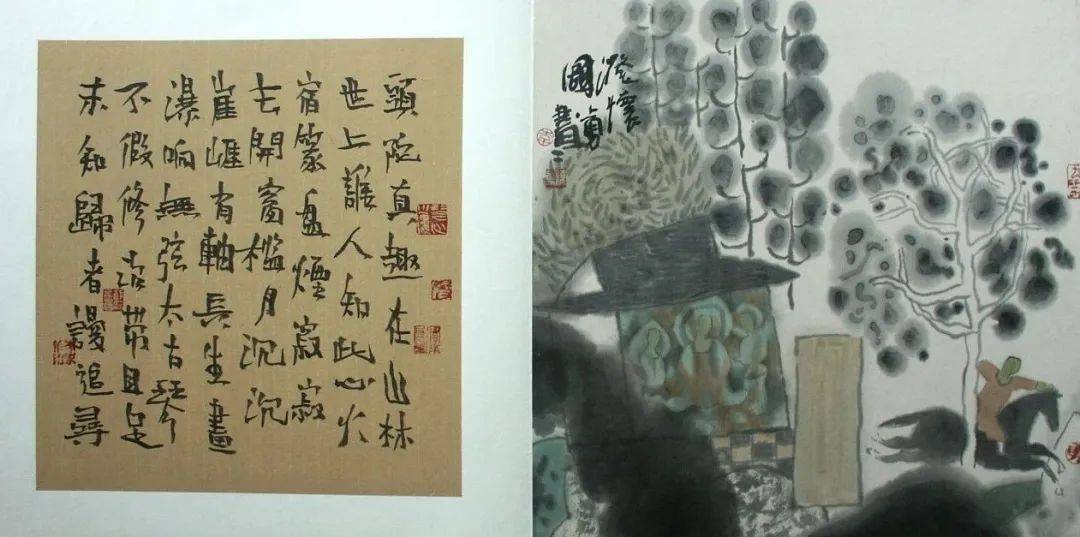 頭陀真趣在山林
世上誰人知此心火
宿篆盘煙寂寂
云開窗檻月沉沉
崖有軸長生畫
瀑响無弦太古琴
不假修治常具足
未知歸者謾追尋
澄懷
圖勇
書